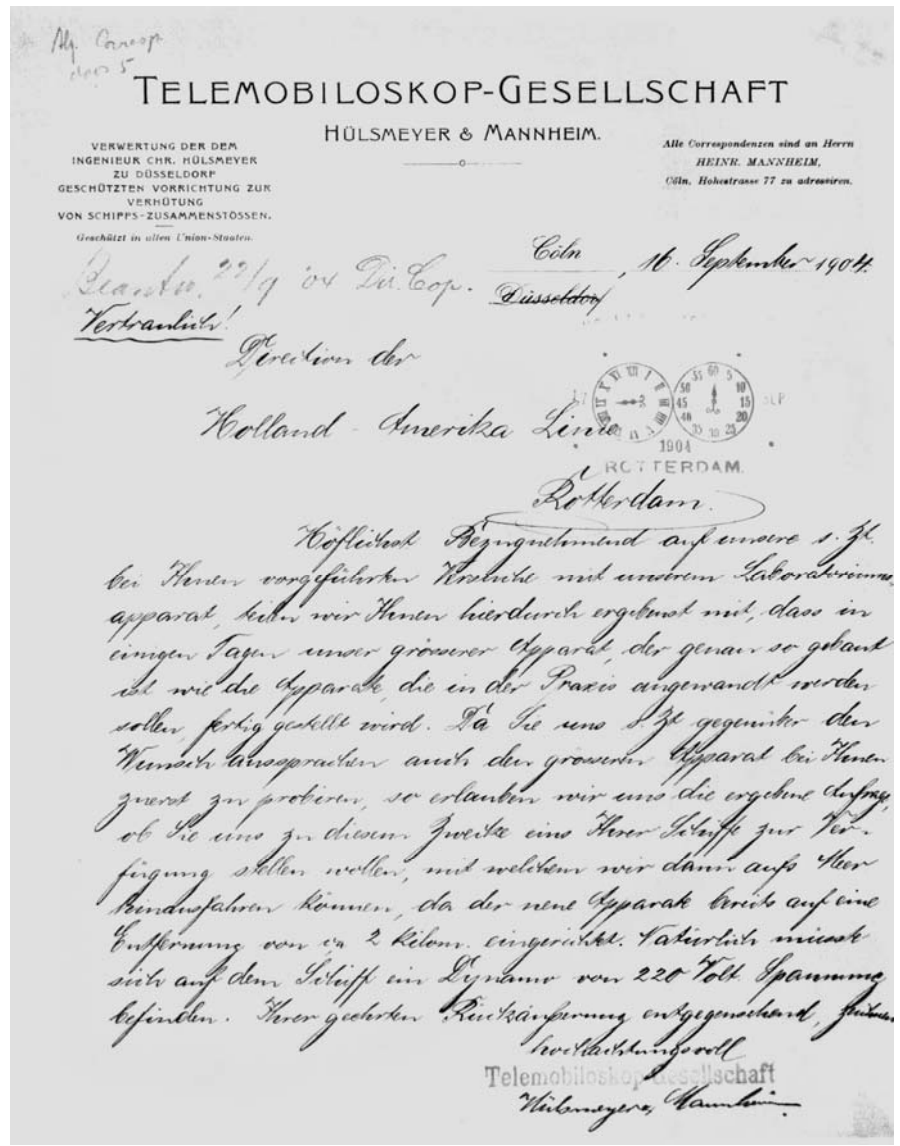 Alg. Corresp
doos 5
TELEMOBILOSKOP-GESELLSCHAFT
HÜLSMEYER & MANNHEIM.
VERWERTUNG DER DEM
INGENIEUR CHR. HÜLSMEYER
ZU DÜSSELDORF
GESCHÜTZTEN VORRICHTUNG ZUR
VERHÜTUNG
VON SCHIPPS-ZUSAMMENSTÖSSEN.
Geschützt in allen Union-Staaten.
Alle Correspondenzen sind an Herrn
HEINR. MANNHEIM,
Cöln, Hohestrasse 77 zu adressiren.
Beantw. 22/9 '04 Dir. Cop.
Cöln, 16. September 1904.
Düsseldorf
Vertraulich!
Direction der
Holland-Amerika Linie
17 SEP
1904
ROTTERDAM.
Rotterdam.
Höflichst Bezugnehmend auf unsere s. Zt.
bei Ihnen vorgeführten Versuche mit unserem Laboratoriums-
apparat, teilen wir Ihnen hierdurch ergebenst mit, dass in
einigen Tagen unser grösserer Apparat, der genau so gebaut
ist wie die Apparate, die in der Praxis angewandt werden
sollen, fertig gestellt wird. Da Sie uns s. Zt gegenüber den
Wunsch aussprachen auch den grösseren Apparat bei Ihnen
zuerst zu probiren, so erlauben wir uns die ergebene Anfrage,
ob Sie uns zu diesem Zwecke eins Ihrer Schiffe zur Ver-
fügung stellen wollen, mit welchem wir dann aufs Meer
hinausfahren können, da der neue Apparate bereits auf eine
Entfernung von ca 2 Kilom. eingerichtet. Natürlich müsste
sich auf dem Schiff ein Dynamo von 220 Volt. Spannung
befinden. Ihrer geehrten Rückäußerung entgegensehend, zeichnen
hochachtungsvoll
Telemobiloskop-Gesellschaft
Hülsmeyer & Mannheim